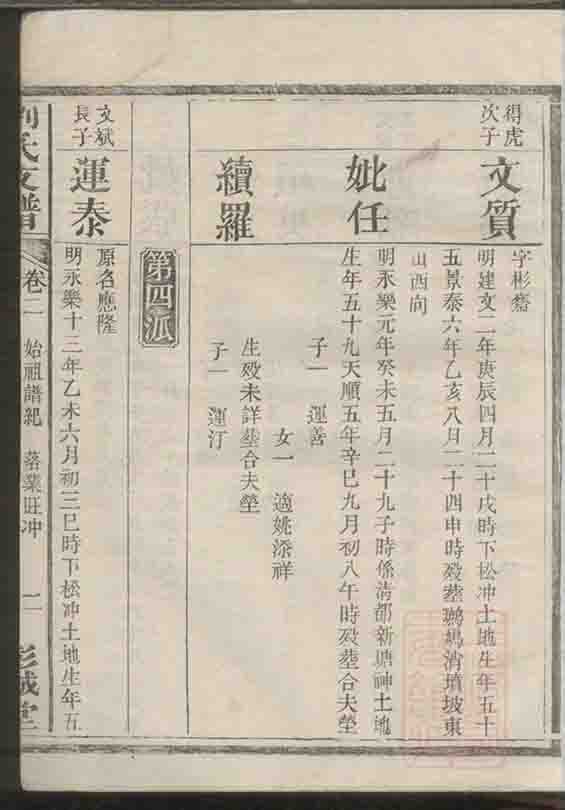 得虎
次子
文質
字彬齋
明建文二年庚辰四月二十戌時下松冲土地生年五十
五景泰六年乙亥八月二十四申時殁塟鸚鵡消墳坡東
山西向
妣任
明永樂元年癸未五月二十九子時係清都新塘神土地
生年五十九天順五年辛巳九月初八午時殁塟合夫塋
子一 運善
女一 適姚添祥
續羅
生殁未詳塟合夫塋
子一 運汀
第四派
文斌
長子
運泰
原名應隆
明永樂十三年乙未六月初三巳時下松冲土地生年五
劉氏支譜
卷二 始祖譜紀 落業旺冲
二
彭城堂